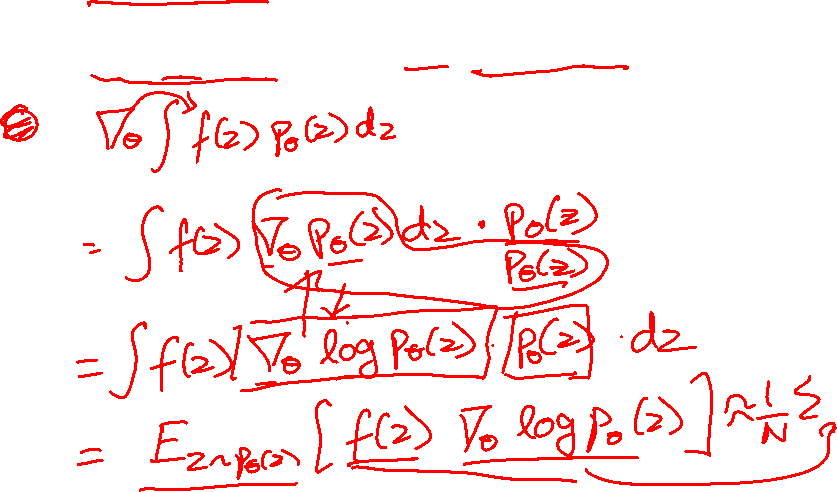 ∇_θ ∫ f(z) p_θ(z) dz
= ∫ f(z) ∇_θ p_θ(z) dz · p_θ(z) / p_θ(z)
= ∫ f(z) ∇_θ log p_θ(z) · p_θ(z) · dz
= E_{z~p_θ(z)} [ f(z) ∇_θ log p_θ(z) ] ≈ 1/N Σ